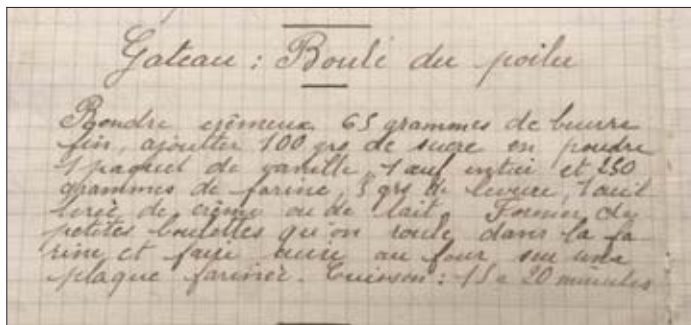 Gateau : Boule du poilu
Rendre crêmeux 65 grammes de beurre
fin, ajoutter 100 grs de sucre en poudre
1 paquet de vanille, 1 œuf entier et 250
grammes de farine, 5 grs de levure, 1 cuil
lerée de crème ou de lait. Former de
petites boulettes qu'on roule dans la fa
rine et faire cuire au four sur une
plaque farinée. Cuisson : 15 a 20 minutes